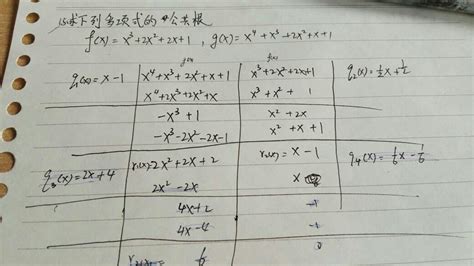 15.求下列多项式的公共根
f(x) = x³+2x²+2x+1 , g(x) = x⁴+x³+2x²+x+1
g(x) f(x)
q₁(x) = x-1 x⁴+x³+2x²+x+1 x³+2x²+2x+1 q₂(x)=½x+½
x⁴+2x³+2x²+x x³+x²+ 1
-x³ +1 x²+2x
-x³-2x²-2x-1 x²+x+1
q₃(x)=2x+4 r₁(x)=2x²+2x+2 r₂(x)= x-1 q₄(x)=⅙x-⅙
2x²-2x x
4x+2 -1
4x-4 -1
6 0